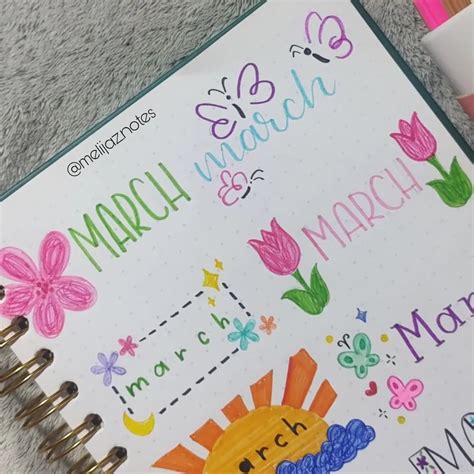 @melijaznotes
MARCH
march
MARCH
march
Mar
arch